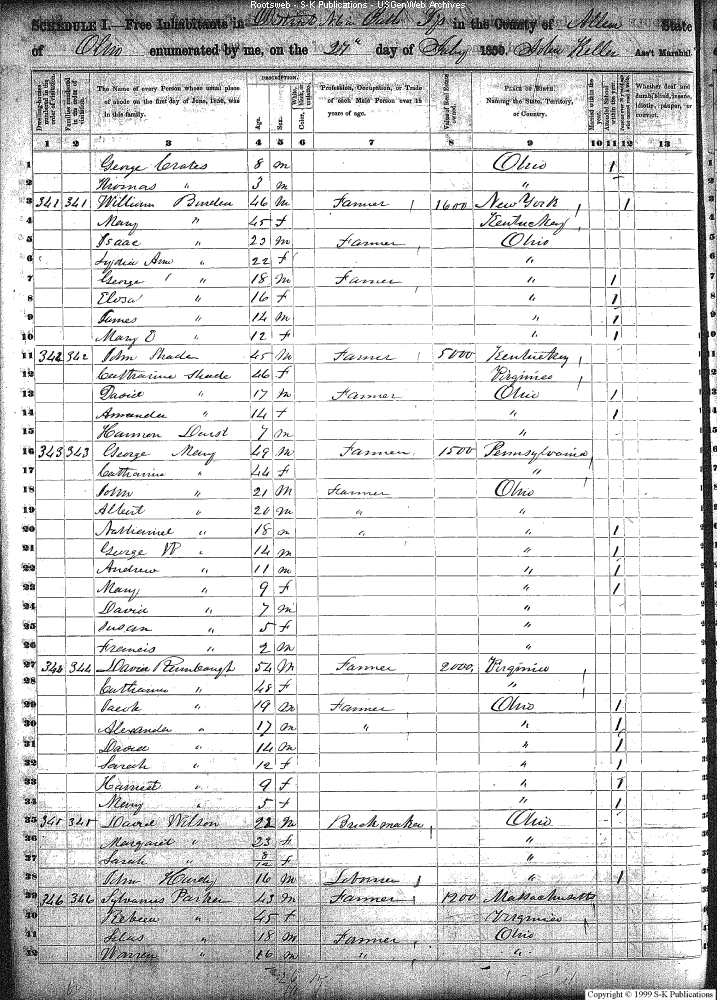 Rootsweb - S-K Publications - USGenWeb Archives
SCHEDULE I.—Free Inhabitants in in the County of Allen State
of Ohio enumerated by me, on the day of July 1850. John Keller Ass't Marshal.
DESCRIPTION.
Dwelling-houses numbered in the order of visitation.
Families numbered in the order of visitation.
The Name of every Person whose usual place of abode on the first day of June, 1850, was in this family.
Age.
Sex.
White, black, or mulatto.
Color,
Profession, Occupation, or Trade of each Male Person over 15 years of age.
Value of Real Estate owned.
PLACE OF BIRTH. Naming the State, Territory, or Country.
Married within the year.
Attended School within the year.
Whether deaf and dumb, blind, insane, idiotic, pauper, or convict.
1 2 3 4 5 6 7 8 9 10 11 12 13
1 George Crates 8 m Ohio 1
2 Thomas " 3 m "
3 341 341 William Burden 46 m Farmer 1600 New York 1
4 Mary " 45 f Kentuckey
5 Isaac " 23 m Farmer Ohio
6 Lydia Ann " 22 f "
7 George " 18 m Farmer " 1
8 " 16 f " 1
9 James " 14 m " 1
10 Mary E " 12 f " 1
11 342 342 John Shade 45 m Farmer 5000 Kentuckey
12 Catharine Shade 46 f Virginia
13 David " 17 m Farmer Ohio 1
14 Amanda " 14 f " 1
15 Harmon Durst 7 m "
16 343 343 George Mary 49 m Farmer 1500 Pennsylvania
17 Catharine " 44 f "
18 John " 21 m Farmer Ohio
19 Albert " 20 m " "
20 Nathaniel " 18 m " " 1
21 George W " 14 m " 1
22 Andrew " 11 m " 1
23 Mary " 9 f " 1
24 David " 7 m "
25 Susan " 5 f "
26 Francis " 2 m "
27 344 344 David Rumbaugh 54 m Farmer 2000 Virginia
28 Catharine " 48 f "
29 Jacob " 19 m Farmer Ohio 1
30 Alexander " 17 m " " 1
31 David " 14 m " 1
32 Sarah " 12 f " 1
33 Harriet " 9 f " 1
34 Mary " 5 f " 1
35 345 345 David Wilson 22 m Brickmaker Ohio
36 Margaret " 23 f "
37 Sarah " 8/12 f "
38 John Handy 16 m Laborer " 1
39 346 346 Sylvanus Parker 43 m Farmer 1200 Massachusetts
40 " 45 f Virginia
41 Silas " 18 m Farmer Ohio
42 Warren " 16 m " "
Copyright © 1999 S-K Publications